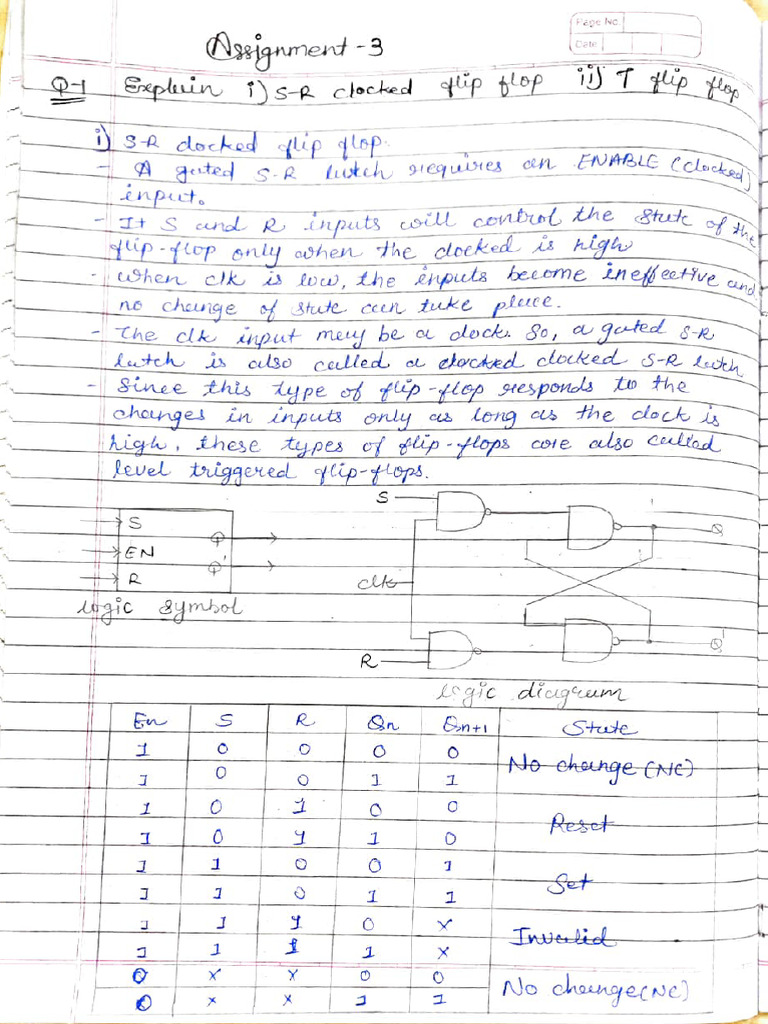 Page No.
Date
Assignment - 3
Q-1 Explain i) S-R clocked flip flop ii) T flip flop
i) S-R clocked flip flop.
- A gated S-R latch requires an ENABLE (clocked)
input.
- It S and R inputs will control the state of the
flip-flop only when the clocked is high
- when clk is low, the inputs become ineffective and
no change of state can take place.
- The clk input may be a clock. So, a gated S-R
latch is also called a clocked clocked S-R latch
- Since this type of flip-flop responds to the
changes in inputs only as long as the clock is
high, these types of flip-flops are also called
level triggered flip-flops.
S
S Q
EN
R Q'
clk
Q
Q'
R
logic symbol
logic diagram
En S R Qn Qn+1 State
1 0 0 0 0 No change (NC)
1 0 0 1 1
1 0 1 0 0 Reset
1 0 1 1 0
1 1 0 0 1 Set
1 1 0 1 1
1 1 1 0 x Invalid
1 1 1 1 x
0 x x 0 0 No change (NC)
0 x x 1 1